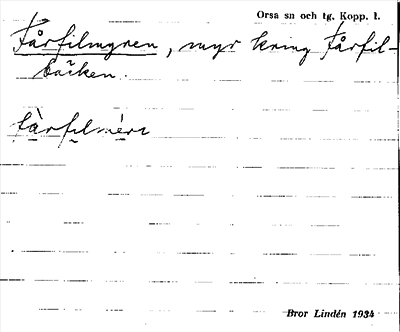 Orsa sn och tg. Kopp. l.
Fårfilmyren, myr kring Fårfil-
bäcken.
fàrfilmýrɩ
Bror Lindén 1934